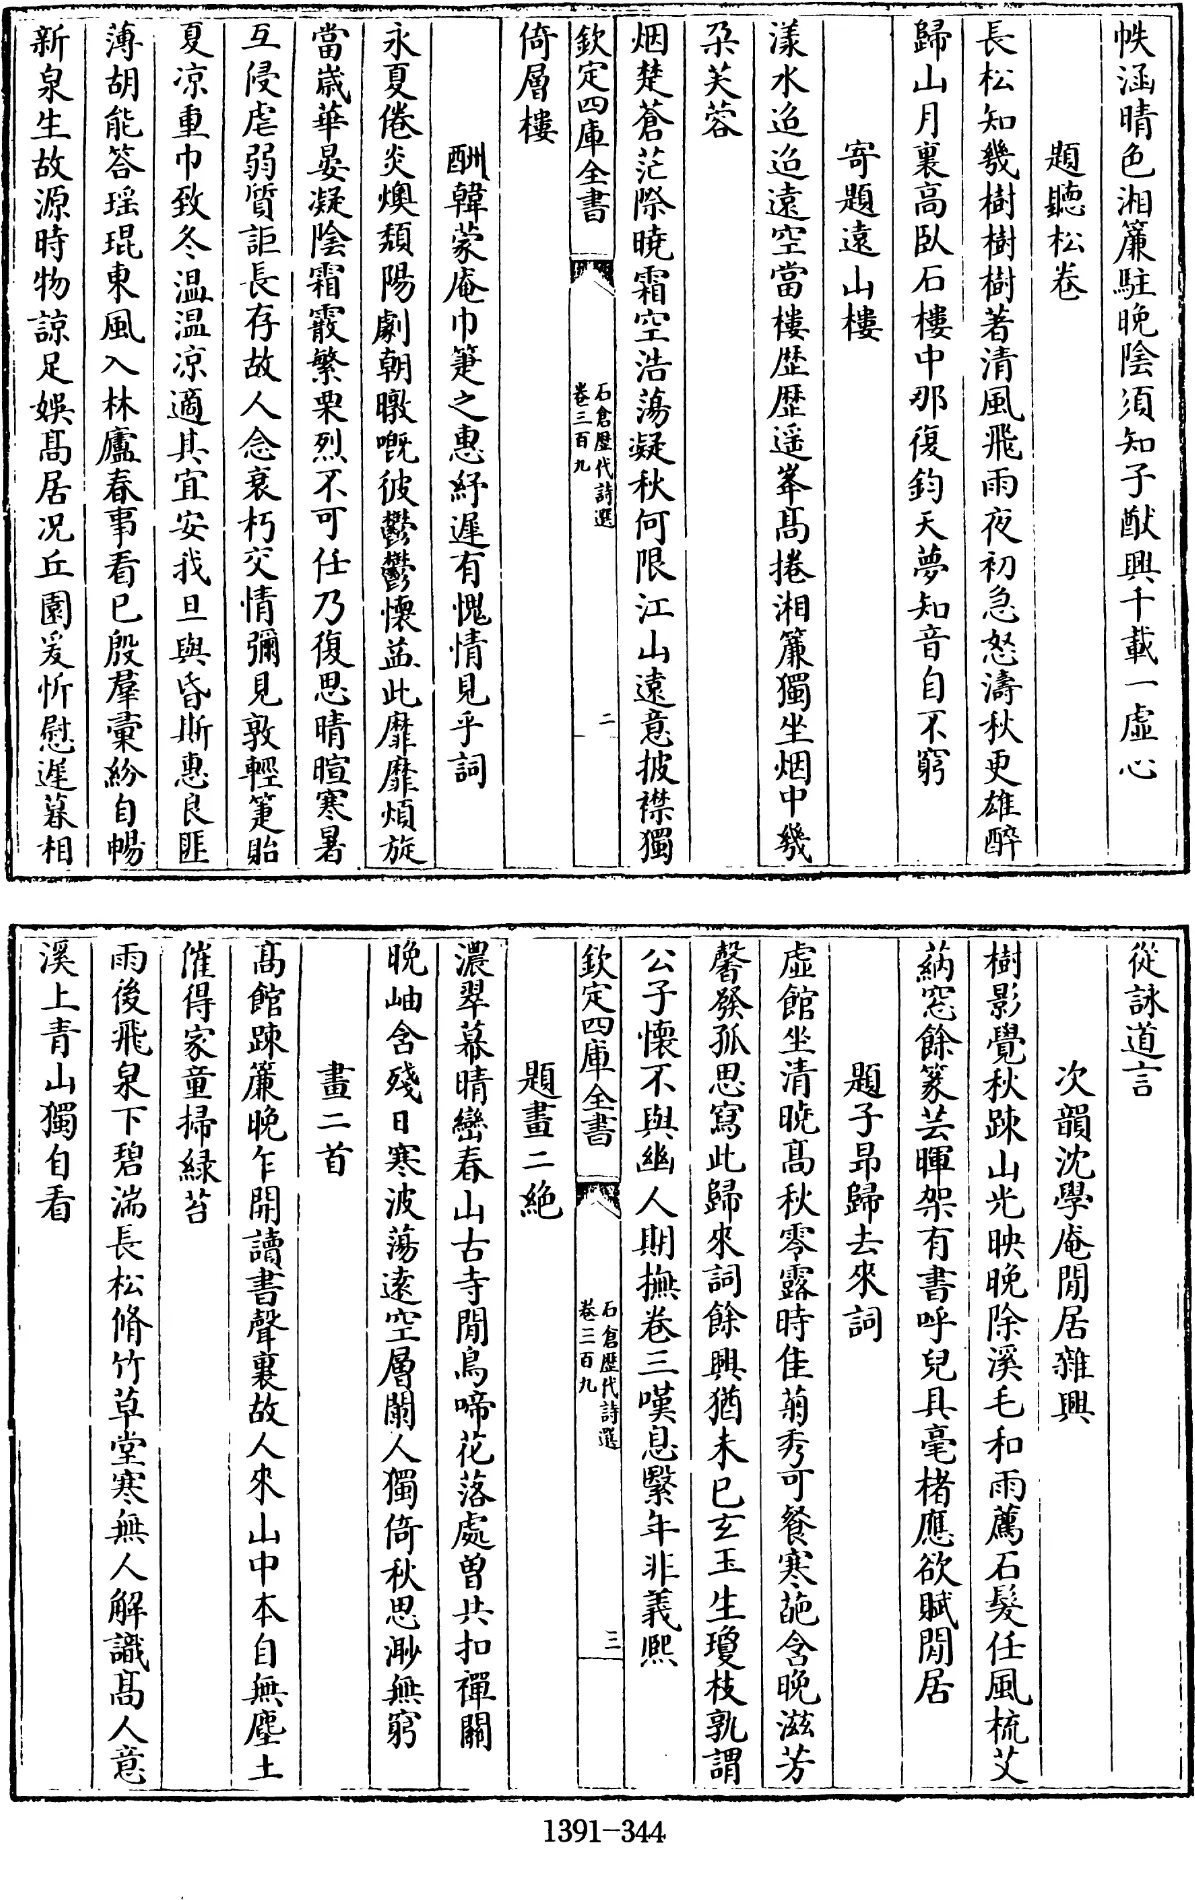 帙涵晴色湘簾駐晚陰須知子猷興千載一虛心
題聽松卷
長松知幾樹樹樹著清風飛雨夜初急怒濤秋更雄醉
歸山月裏高臥石樓中那復鈞天夢知音自不窮
寄題遠山樓
漾水迢迢遠空當樓歴歴遥峯髙捲湘簾獨坐烟中幾
朶芙蓉
烟楚蒼茫際曉霜空浩蕩凝秋何限江山遠意披襟獨
欽定四庫全書
石倉歴代詩選
卷三百九
二
倚層樓
酬韓蒙庵巾箑之惠紓遲有愧情見乎詞
永夏倦炎燠頽陽劇朝暾嘅彼鬱鬱懷葢此靡靡煩旋
當歲華晏凝陰霜霰繁栗烈不可任乃復思晴暄寒暑
互侵虐弱質詎長存故人念衰朽交情彌見敦輕箑貽
夏凉重巾致冬温温凉適其宜安我旦與昏斯惠良匪
薄胡能答瑶琨東風入林廬春事看已殷羣彚紛自暢
新泉生故源時物諒足娛髙居况丘園爰忻慰遲暮相
從詠道言
次韻沈學庵閒居雜興
樹影覺秋踈山光映晚除溪毛和雨薦石髮任風梳艾
蒳窓餘篆芸暉架有書呼兒具毫楮應欲賦閒居
題子昻歸去來詞
虛館坐清曉髙秋零露時佳菊秀可餐寒葩含晚滋芳
馨發孤思寫此歸來詞餘興猶未已玄玉生瓊枝孰謂
公子懷不與幽人期撫卷三嘆息緊年非義熈
欽定四庫全書
石倉歴代詩選
卷三百九
三
題畫二絶
濃翠幕晴巒春山古寺閒鳥啼花落處曽共扣禪關
晚岫含殘日寒波蕩逺空層闌人獨倚秋思渺無窮
畫二首
髙館踈簾晚乍開讀書聲裏故人來山中本自無塵土
催得家童掃緑苔
雨後飛泉下碧湍長松脩竹草堂寒無人解識髙人意
溪上青山獨自看
1391-344